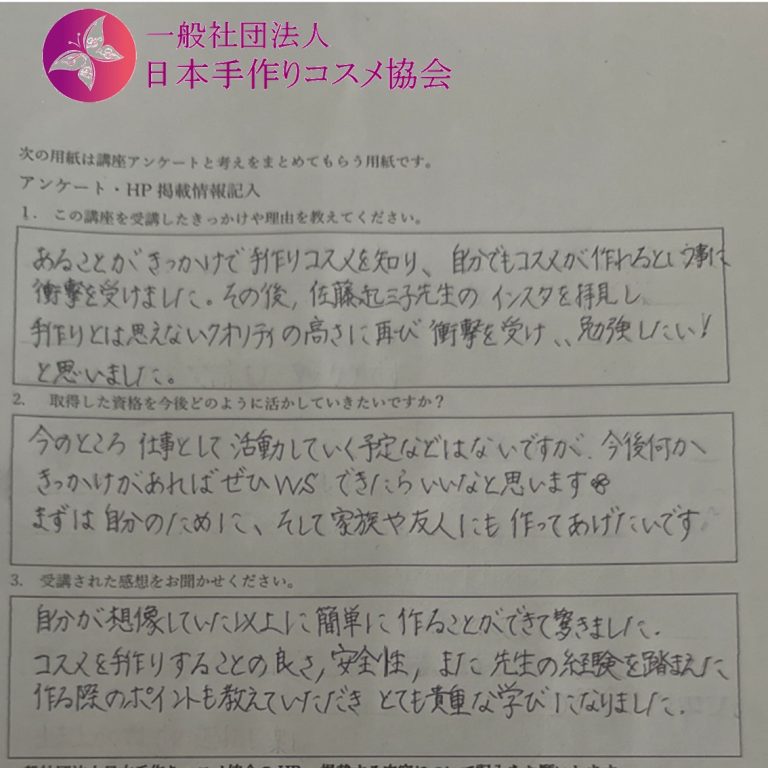 一般社団法人
日本手作りコスメ協会
次の用紙は講座アンケートと考えをまとめてもらう用紙です。
アンケート・HP 掲載情報記入
1. この講座を受講したきっかけや理由を教えてください。
あることがきっかけで手作りコスメを知り、自分でもコスメが作れるという事に
衝撃を受けました。その後、佐藤起三子先生の インスタを拝見し
手作りとは思えないクオリティの高さに再び 衝撃を受け、、勉強したい!
と思いました。
2. 取得した資格を今後どのように活かしていきたいですか?
今のところ 仕事として 活動していく予定などはないですが、今後何か
きっかけがあればぜひWS できたらいいなと思います
まずは 自分のために、そして家族や友人にも 作ってあげたいです
3. 受講された感想をお聞かせください。
自分が想像していた以上に簡単に 作ることができて驚きました.
コスメを手作りすることの良さ,安全性, また 先生の経験を踏まえた
作る際のポイントも教えていただき とても貴重な学びになりました.